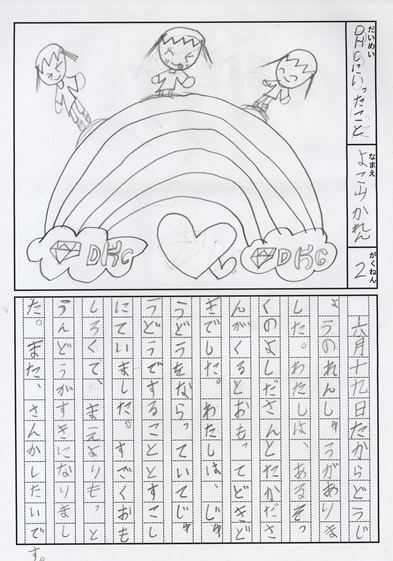 だいめい
DHCにいったこと
なまえ
よこ山かれん
がくねん
2
DHC
DHC
六月十九日たからどうじ
ょうのれんしゅうがありま
した。わたしは、あるそっ
くのよしださんとたかださ
んがくるとおもってどきど
きでした。わたしは、じゅ
うどうをならっていてじゅ
うどうですることとすこし
にていました。すごくおも
しろくて、まえよりもっと
うんどうがすきになりまし
た。また、さんかしたいで
す。